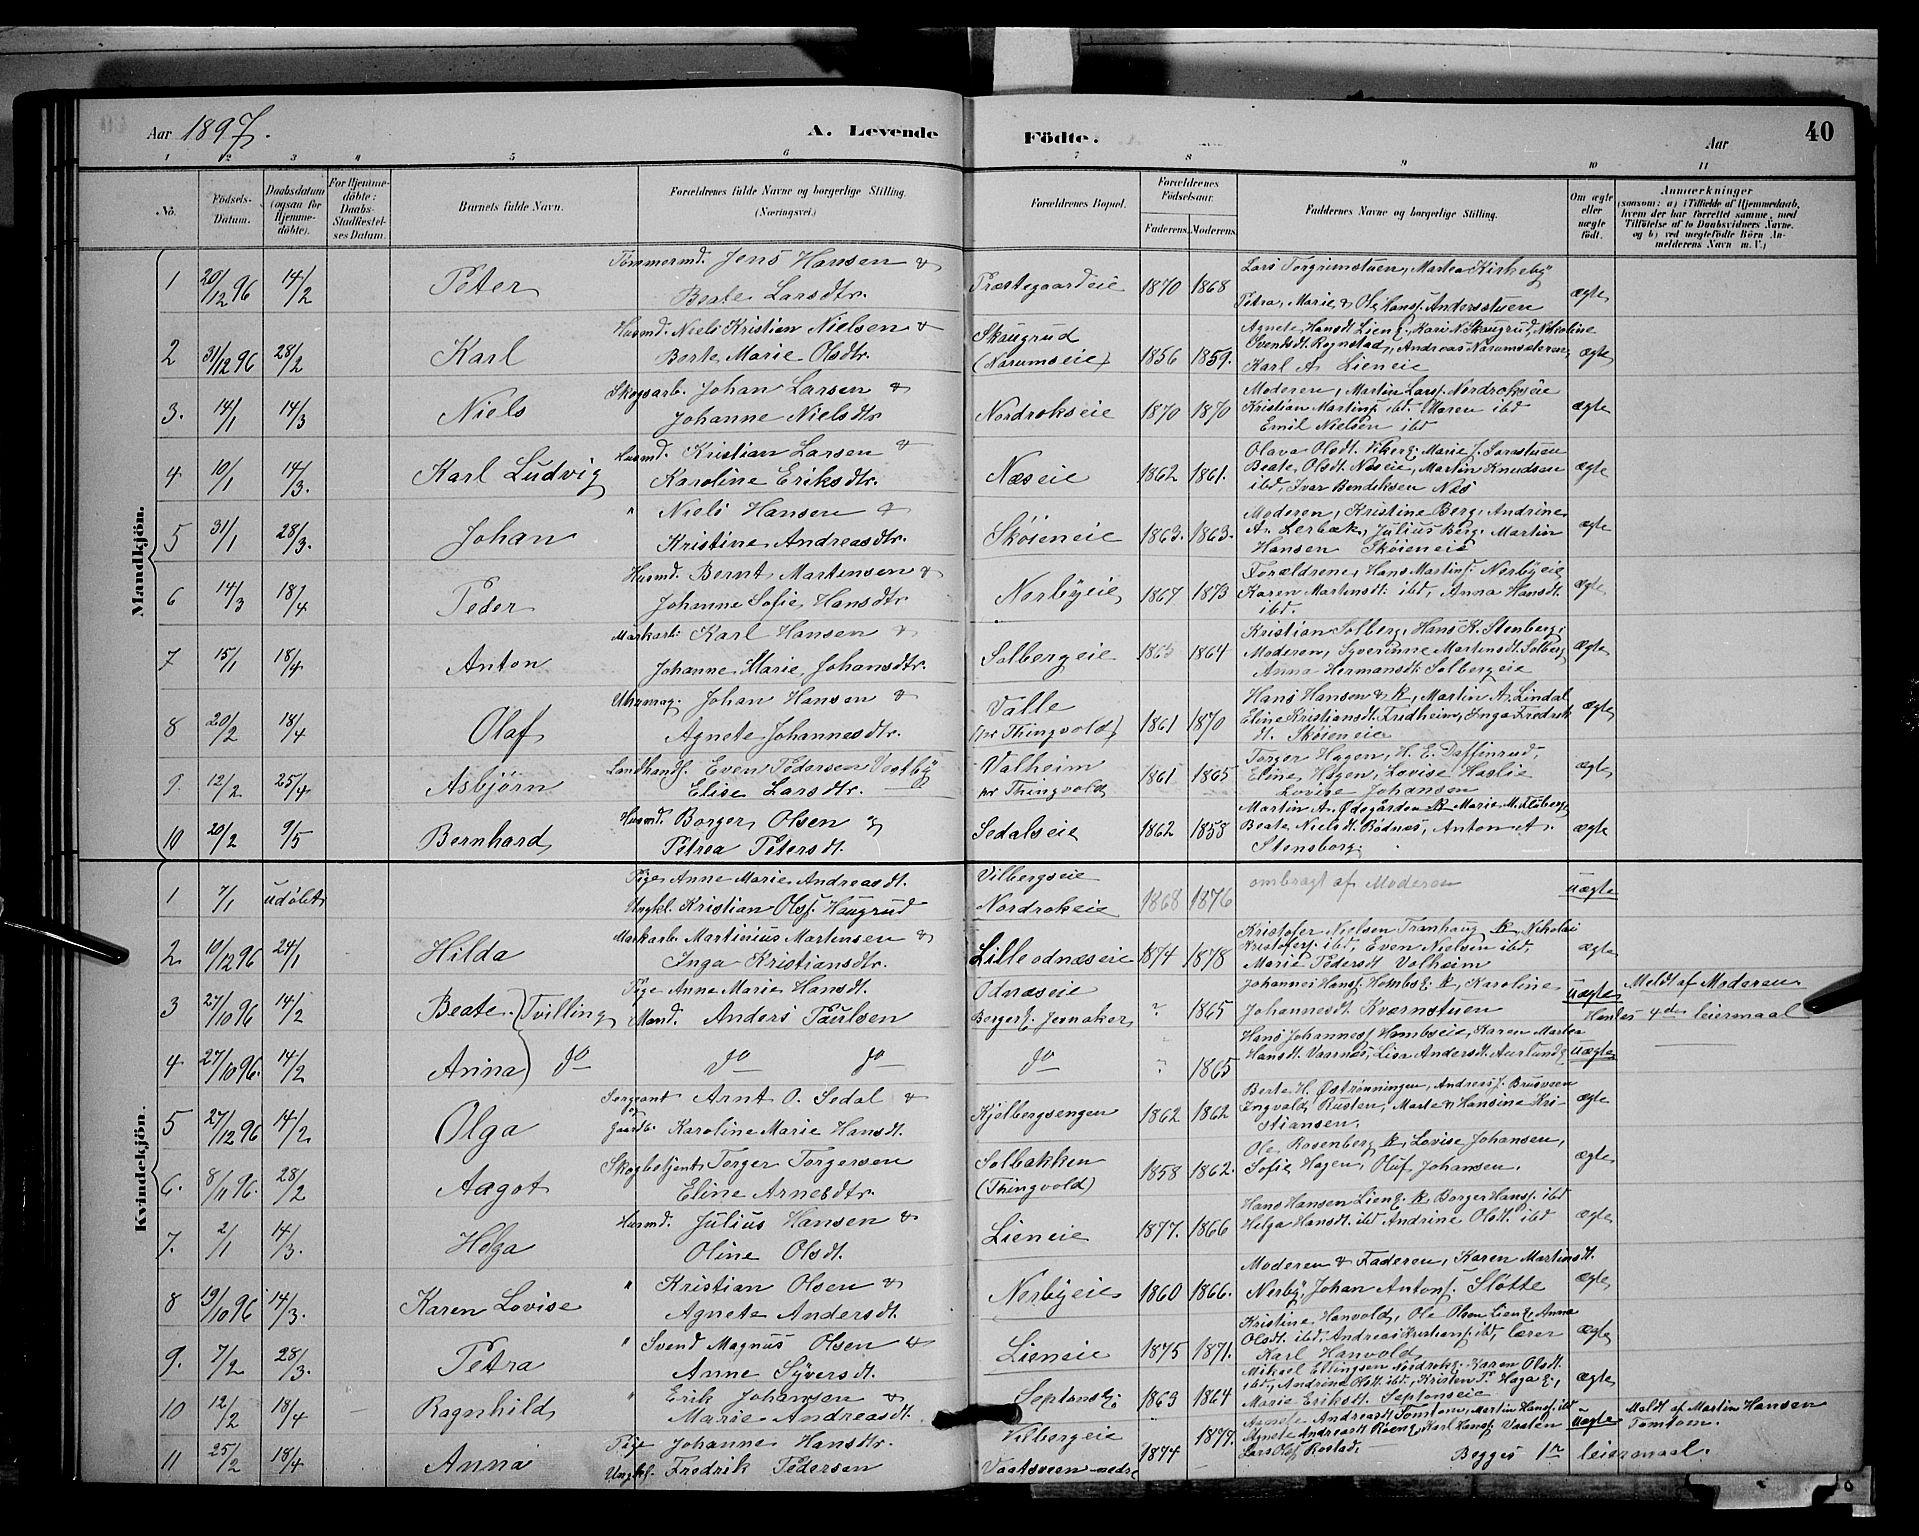 Aar 1897. A. Levende Födte. Aar 40
1 2 3 4 5 6 7 8 9 10 11
No. Födsels-Datum. Daabsdatum (ogsaa for Hjemmedöbte). For Hjemmedöbte: Daabs-Stadfæstelses Datum. Barnets fulde Navn. Forældrenes fulde Navne og borgerlige Stilling. (Næringsvei.) Forældrenes Bopæl. Forældrenes Födselsaar. Faderens. Moderens. Faddernes Navne og borgerlige Stilling. Om ægte eller uægte födt. Anmærkninger (saasom: a) i Tilfælde af Hjemmedaab, hvem der har forrettet samme, med Tilföielse af to Daabsvidners Navne. og b) ved uægtefödte Börn Anmelderens Navn m. V.)
Mandkjön.
1 20/12 96 14/2 Peter Tømmermd. Jens Hansen &
Beate Larsdtr. Præstegaardeie 1870 1868 Lars Torgrimstuen, Martea Kirkeby
Petra, Marie & Ole Hansf. Andersstuen ægte
2 31/12 96 28/2 Karl Husmd. Niels Kristian Nielsen &
Berte Marie Olsdtr. Skaugrud (Narumseie) 1856 1859. Agnete Hansdt. Lieng., Kari N. Skaugrud, Nikoline
Svendsdt. Rognstad, Andreas Narumsæteren,
Karl A. Lieneie ægte
3. 14/1 14/3 Niels Skogsarb. Johan Larsen &
Johanne Nielsdtr Nordrokseie 1870 1870 Moderen, Martin Larsf. Nordrokseie
Kristian Martinsf. ibd. Maren ibd
Emil Nielsen ibd ægte
4 10/1 14/3. Karl Ludvig Husmd. Kristian Larsen &
Karoline Eriksdtr. Næseie 1862 1861. Olava Olsdt. Viberg. Marie J. Sarastuen
Beate Olsdt. Næseie, Martin Knudsen
ibd, Ivar Bendiksen Næs ægte
5 31/1 28/3. Johan " Niels Hansen &
Kristine Andreasdtr. Skøieneie 1863. 1863. Moderen, Kristine Berg, Andrine
A. Lerbæk, Julius Berg, Martin
Hansen Skøieneie ægte
6 14/3 18/4 Peder Husmd. Bernt Martinsen &
Johanne Sofie Hansdtr Nerbyeie 1867 1873 Forældrene, Hans Martinsf. Nerbyeie
Karen Martensdt. ibd, Anna Hansdt.
ibd. ægte
7 15/1 18/4 Anton Markarb. Karl Hansen &
Johanne Marie Johansdtr. Solbergeie 1863 1864 Kristian Solberg, Hans K. Stenberg,
Moderen, Syverinne Martensdt. Solberg
Anna Hermansdt. Solbergeie ægte
8 20/2 18/4 Olaf Uhrmag. Johan Hansen &
Agnete Johannesdtr. Valle (nr Thingvold) 1861 1870 Hans Hansen & K, Martin A. Lindal
Eline Kristiansdt. Fredheim, Inga Fredrik
dt. Skøieneie ægte
9. 12/2 25/4 Asbjørn Landhandl. Even Pedersen Vestby
Elise Larsdtr. Valheim nr Thingvold 1861 1865 Torger Hagen, H. E. Daffinrud,
Eline Hagen, Lovise Haslie
Lovise Johansen ægte
10 20/2 9/5 Bernhard Husmd. Borger Olsen &
Petrea Petersdt. Sedalseie 1862 1858 Martin A. Ødegården K Marie M. Fløberg
Beate Nielsdt. Rødnæs, Anton A.
Stensborg. ægte
Kvindekjön.
1 7/1 udøbt Pige Anne Marie Andreasdt.
Ungkl. Kristian Olsf. Haugrud Vilbergseie
Nordrokeie 1868 1876 ombragt af Moderen uægte
2 19/12 96 24/1 Hilda Markarb. Martinius Martensen &
Inga Kristiansdtr. Lilleodnæseie 1874 1878 Kristofer Nielsen Tranhaug K, Nikolai
Kristofersf. ibd, Even Nielsen ibd,
Marie Pedersdt Valheim ægte
3 27/10 96 14/2 Beate (Tvilling) Pige Anne Marie Hansdt.
Mand. Anders Paulsen Odnæseie
Berger E. Jevnaker ? 1865 Johannes Hansf. Hombs E. K, Karoline
Johannesdt Kværnstuen uægte Meldt af Moderen
Hendes 4de leiermaal
4 27/10 96. 14/2 Anna do do do do ? 1865 Hans Johannesf Hombseie, Karen Martea
Hansdt. Vaarnæs, Lisa Andersdt. Aurlund uægte
5 27/12 96 14/2 Olga Sergeant og Gaardb. Arnt O. Sedal &
Karoline Marie Hansdt. Kjølbergsengen 1862 1862 Berte H. Østrønningen, Andreas J. Brusveen
Ingvald Rusten, Marte & Hansine Kri-
stiansen. ægte
6. 8/11 96. 28/2 Aagot Skogbetjent Torger Torgersen
Eline Arnesdtr. Solbakken (Thingvold) 1858 1862. Ole Rosenberg K, Lovise Johansen,
Sofie Hagen, Oluf Johansen. ægte
7. 2/1 14/3. Helga Husmd. Julius Hansen &
Oline Olsdt. Lieneie 1877. 1866 Hans Hansen Lieng. K, Borger Hansf. ibd
Helga Hansdt. ibd Andrine Olsdt. ibd ægte
8 19/10 96 14/3. Karen Lovise " Kristian Olsen &
Agnete Andersdt. Nerbyeie 1860 1866. Moderen & Faderen, Karen Martinsdt.
Nerby, Johan Antonsf. Sløtte ægte
9. 7/2 28/3. Petra " Svend Magnus Olsen &
Anne Syversdt. Lieneie 1875 1871. Kristine Hanvold, Ole Olsen Lieng Anna
Olsdt. ibd, Andreas Kristiansf. ibd, lærer
Karl Hanvold ægte
10 12/2 18/4 Ragnhild " Erik Johansen &
Marie Andreasdt. Septons E. 1863 1864 Mikael Ellingsen Nordrok E. Karen Olsdt.
ibd, Andrine Olsdt. ibd, Kristen P. Haga E.,
Marie Eriksdt. Septonseie ægte
11 25/2 18/4 Anna Pige Johanne Hansdtr.
Ungkl. Fredrik Pedersen Vilbergeie
Vaatsveen nedre 1874 1877. Agnete Andreasdt Tomtom, Martin Hansf. ibd
Agnete Andreasdt Røeng, Karl Hansf Vaaten
Lars Olsf Rostad. uægte Meldt af Martin Hansen
Tomtom.
Begges 1ste leiermaal.